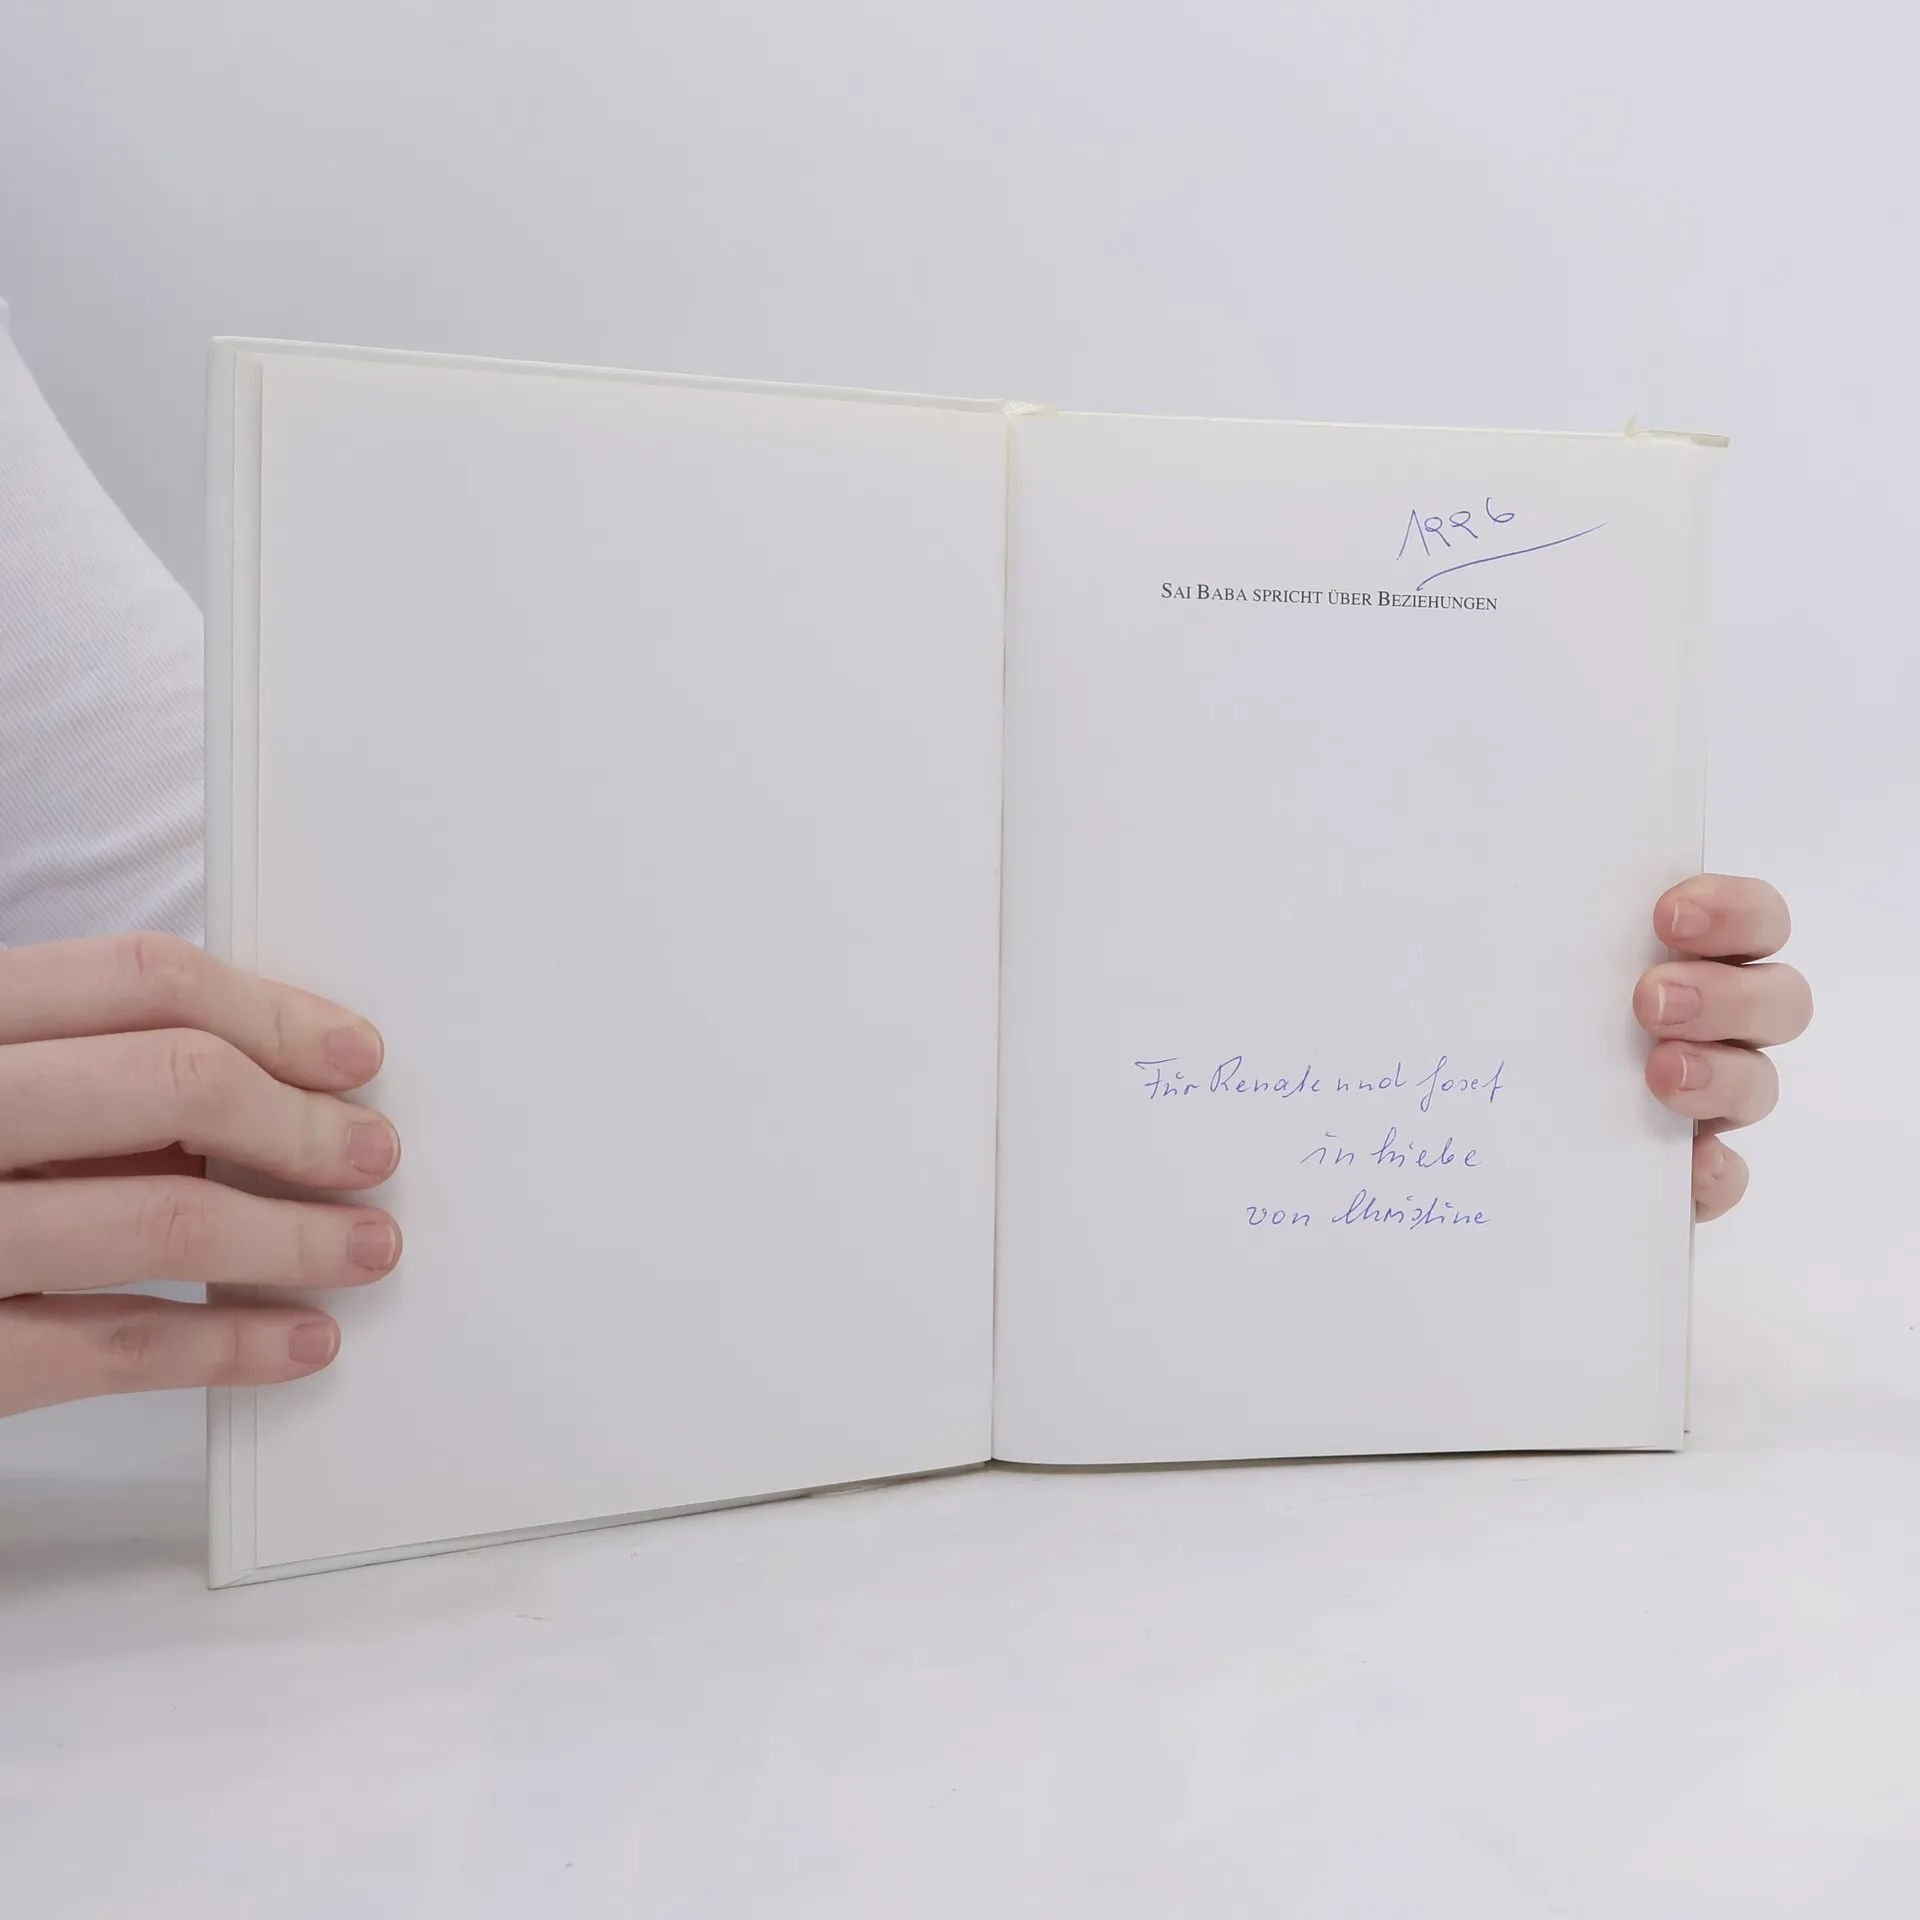 1996
SAI BABA SPRICHT ÜBER BEZIEHUNGEN
Für Renate und Josef
in Liebe
von Christine